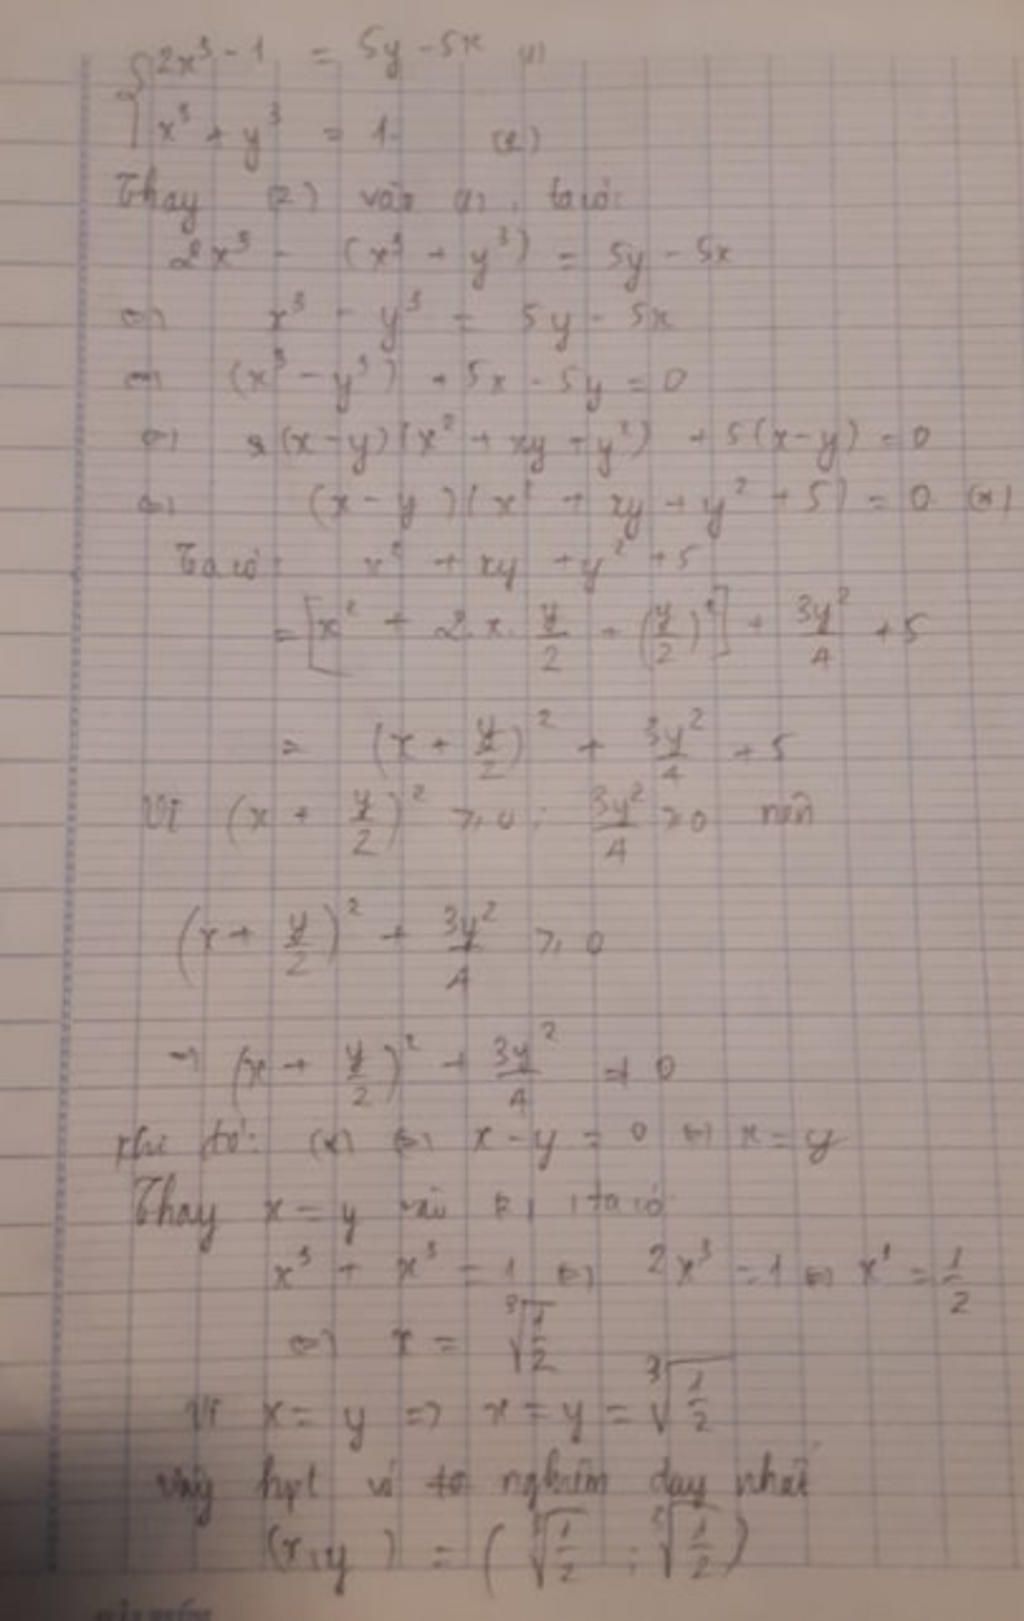 { 2x³ - 1 = 5y - 5x (1)
x³ + y³ = 1. (2)
Thay (2) vào (1), ta có:
2x³ - (x³ + y³) = 5y - 5x
⇔ x³ - y³ = 5y - 5x
⇔ (x³ - y³) + 5x - 5y = 0
⇔ (x - y)(x² + xy + y²) + 5(x - y) = 0
⇔ (x - y)(x² + xy + y² + 5) = 0 (*)
Ta có: x² + xy + y² + 5
= [x² + 2.x.y/2 + (y/2)²] + 3y²/4 + 5
= (x + y/2)² + 3y²/4 + 5
Vì (x + y/2)² ≥ 0; 3y²/4 ≥ 0 nên
(x + y/2)² + 3y²/4 ≥ 0
→ (x + y/2)² + 3y²/4 ≠ 0
Khi đó: (*) ⇔ x - y = 0 ⇔ x = y
Thay x = y vào (2), ta có
x³ + x³ = 1 ⇔ 2x³ = 1 ⇔ x³ = 1/2
⇔ x = ∛(1/2)
Vì x = y ⇒ x = y = ∛(1/2)
Vậy hpt có nghiệm duy nhất
(x, y) = (∛(1/2); ∛(1/2))